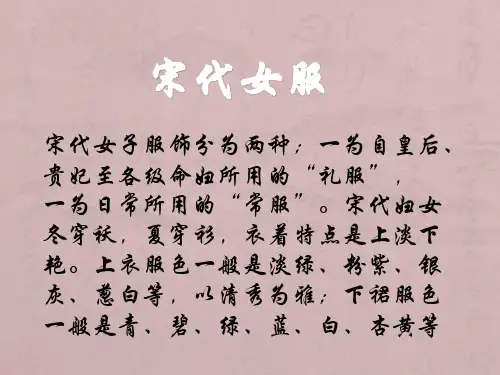 宋代女服
宋代女子服饰分为两种；一为自皇后、
贵妃至各级命妇所用的“礼服”，
一为日常所用的“常服”。宋代妇女
冬穿袄，夏穿衫，衣着特点是上淡下
艳。上衣服色一般是淡绿、粉紫、银
灰、葱白等，以清秀为雅；下裙服色
一般是青、碧、绿、蓝、白、杏黄等